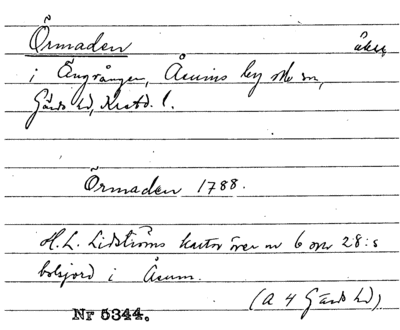 Örmaden åker
i Ängvången, Åsums by och sn,
Gärds hd, Krstd. l.
Örmaden 1788.
H. L. Lidströms kartor över nr 6 och 28:s
bolsjord i Åsum.
(A 4 Gärds hd)
Nr 5344.